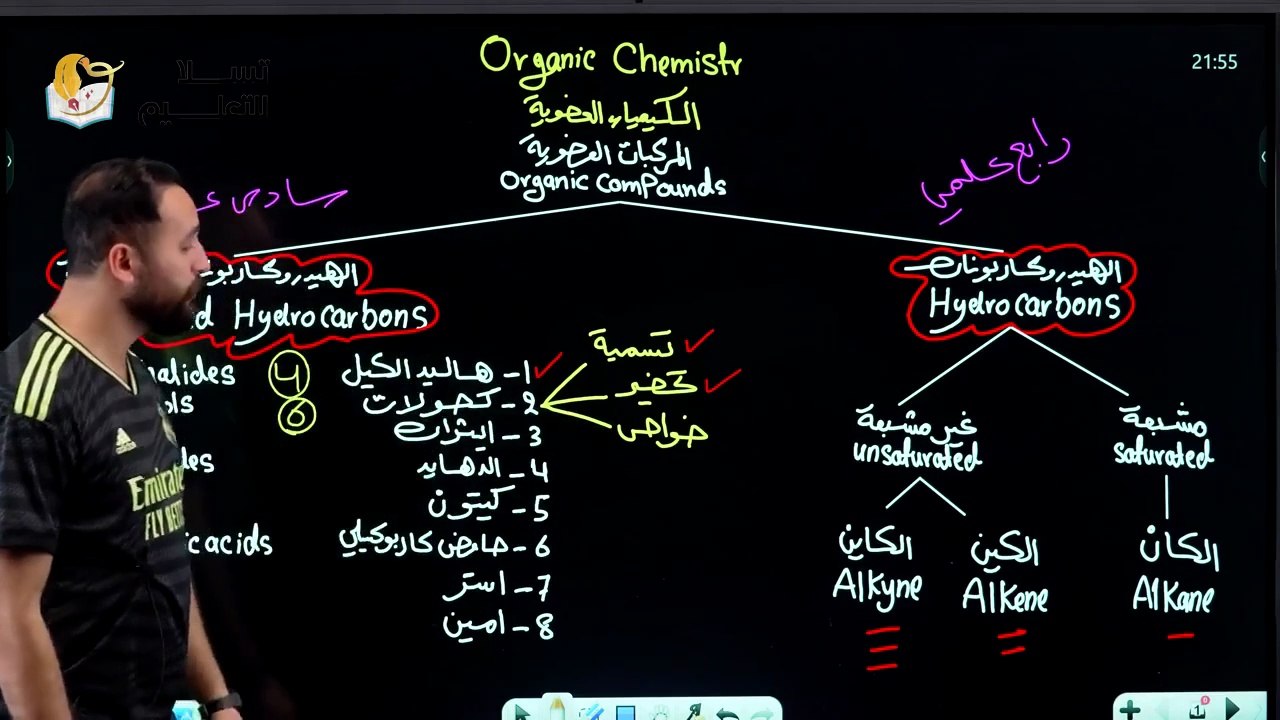 تسلا
للتعليم
21:55
Organic Chemistr
الكيمياء العضوية
المركبات العضوية
Organic Compounds
رابع علمي
سادس
الهيدروكاربونات
Hydrocarbons
الهيدروكاربو
d Hydrocarbons
مشبعة
saturated
غير مشبعة
unsaturated
الكان
Alkane
الكين
Alkene
الكاين
Alkyne
1- هاليد الكيل
2- كحولات
3- ايثرات
4- الدهايد
5- كيتون
6- حامض كاربوكيلي
7- استر
8- امين
تسمية
تحضير
خواص
4
6
halides
ols
des
ic acids
Emirate
FLY BET